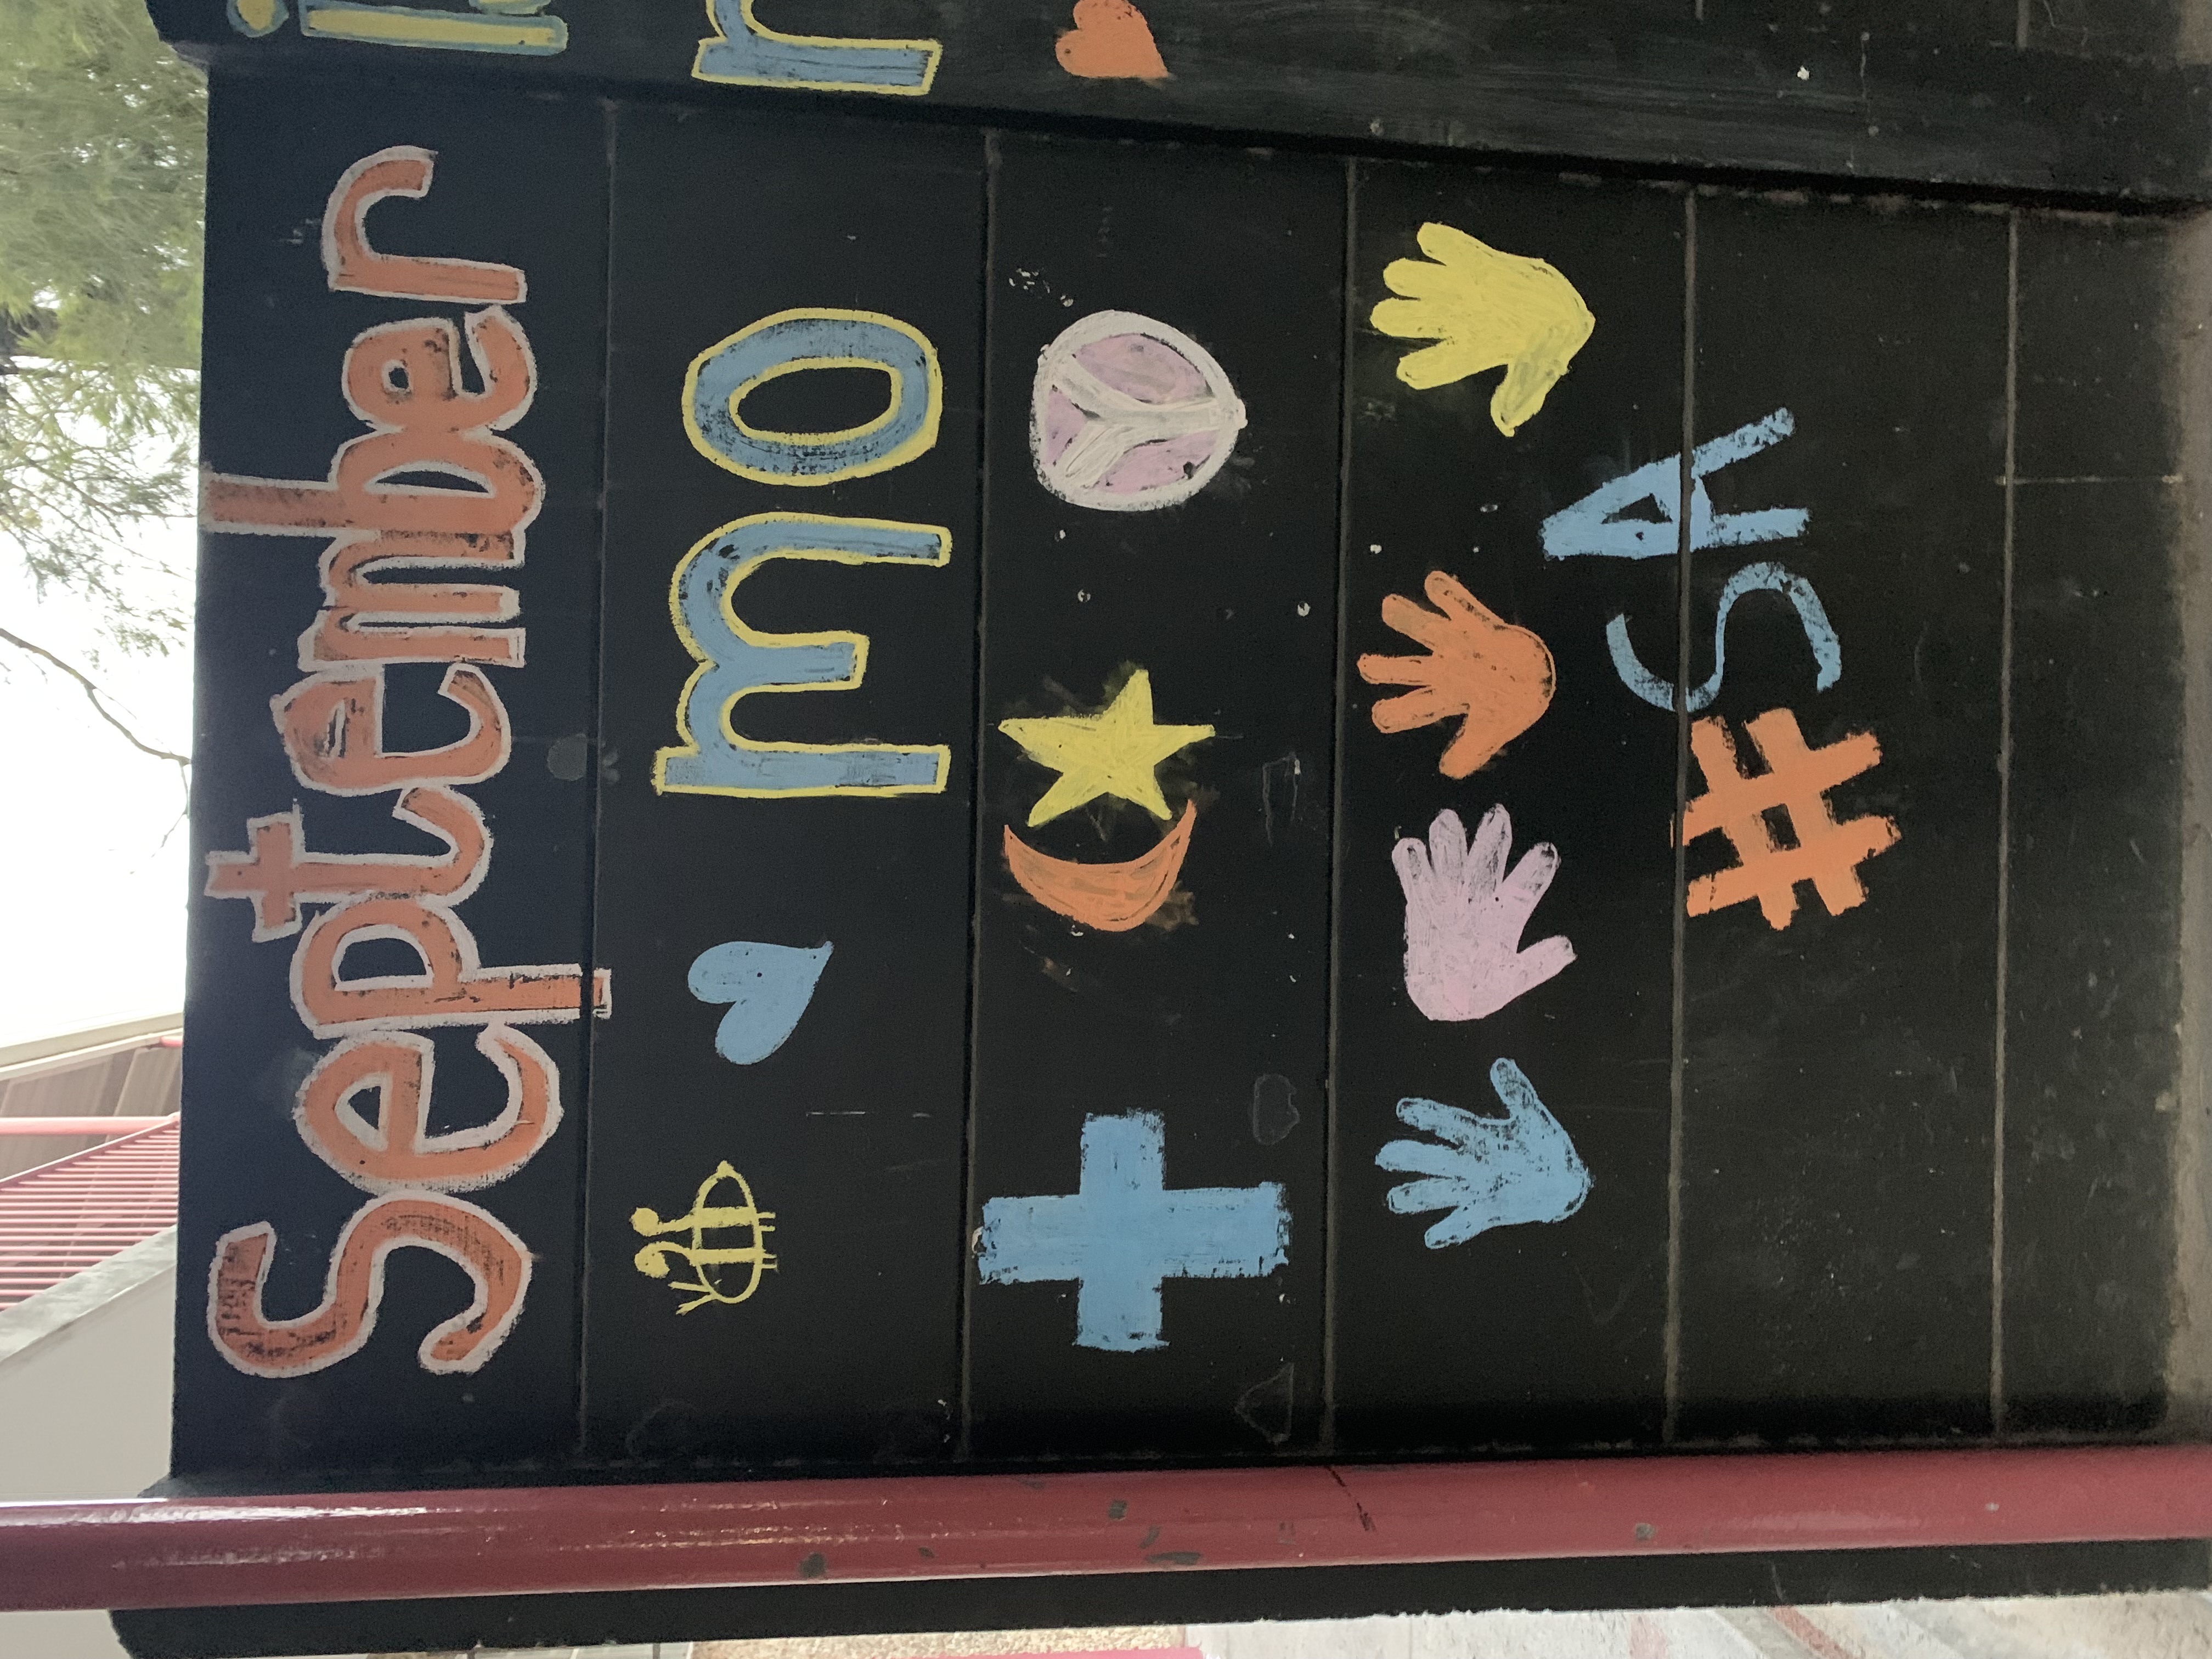 September is
mon
#SA